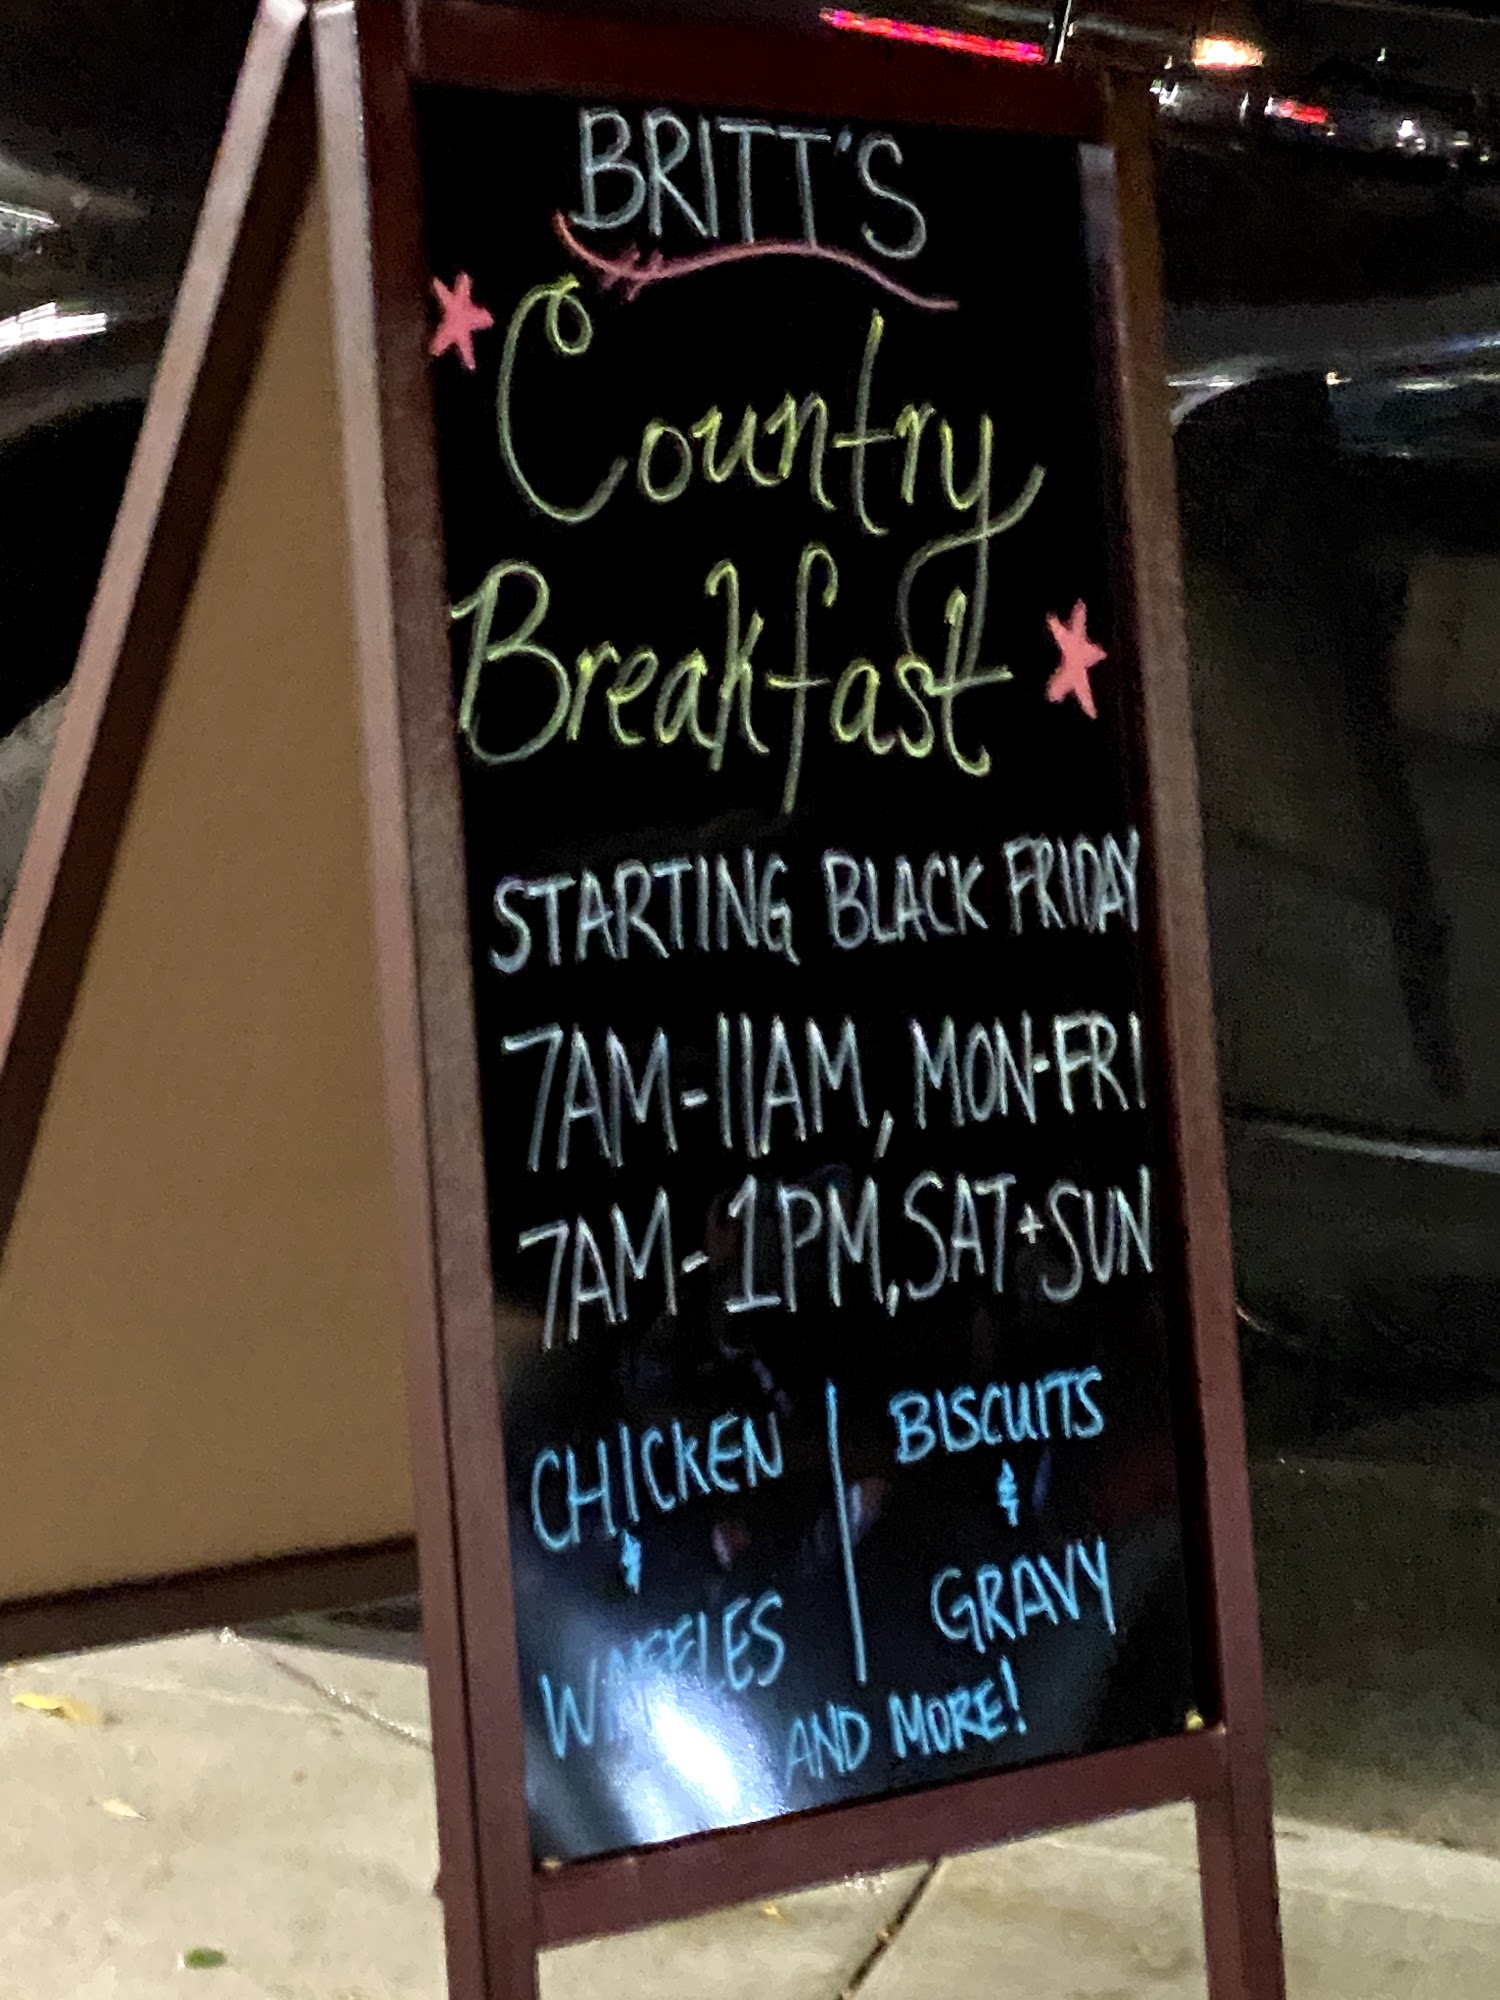 BRITT'S
Country
Breakfast
STARTING BLACK FRIDAY
7AM-11AM, MON-FRI
7AM-1PM, SAT+SUN
CHICKEN
&
WAFFLES
BISCUITS
&
GRAVY
AND MORE!